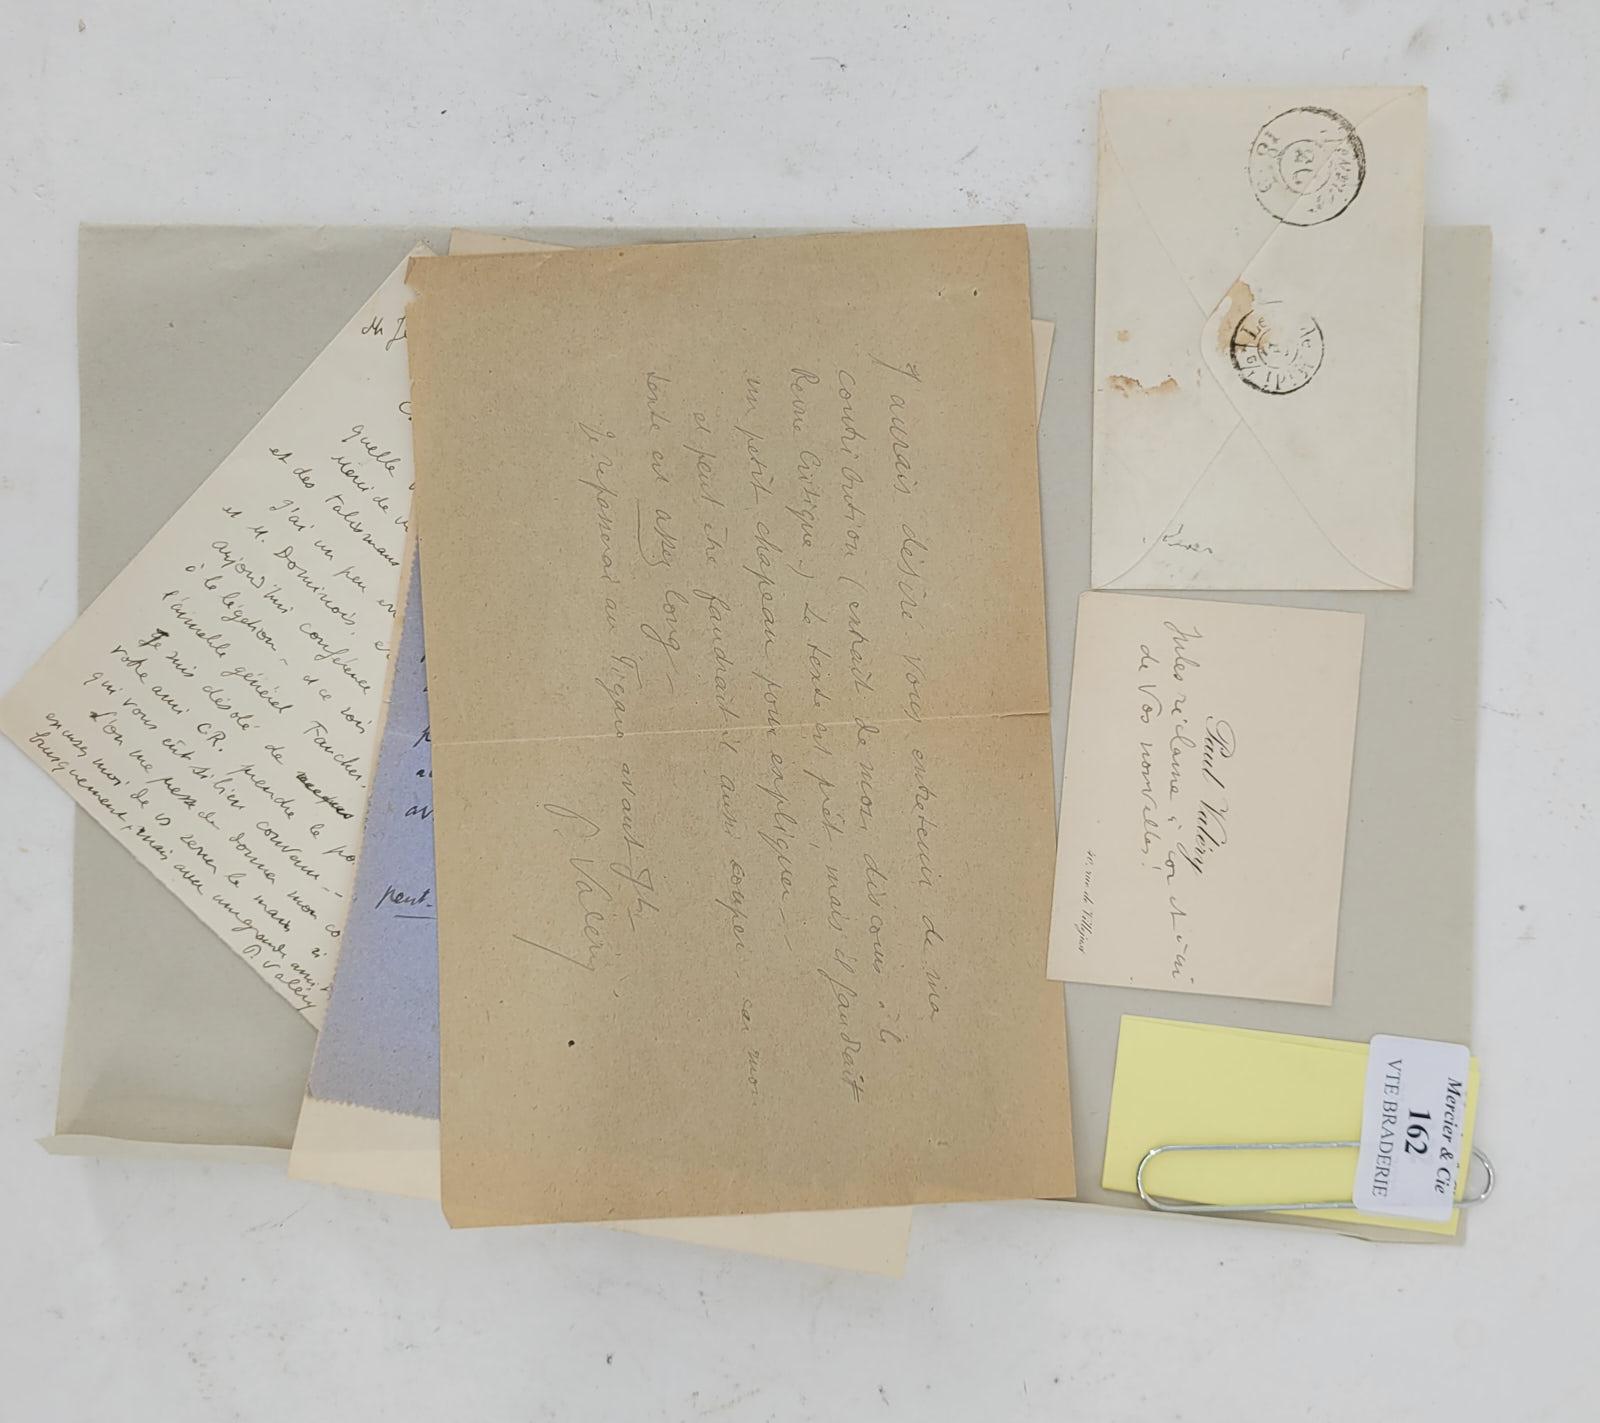 J'aurais désiré vous entretenir de ma
contribution (extrait de mon discours à la
Revue Critique) Le texte est prêt, mais il faudrait
un petit chapeau pour expliquer —
et peut être faudrait-il aussi couper car mon
texte est assez long —
Je repasserai au Figaro avant 7h —
P. Valéry
quelle
Merci de
et des talismans
J'ai un peu
et M. Dominois,
aujourd'hui conférence
à la légation — et ce soir
l'aimable général Faucher.
Je suis désolé de
votre ami C.R. prendre le
qui vous eût si bien convenu —
L'on me presse de donner mon
excusez moi de vs serrer la main si
brusquement, mais avec une grande
P. Valéry
peut-
Paul Valéry
Jules réclame à cor et à cri
de vos nouvelles!
40, rue de Villejust
Mercier & Cie
162
VTE BRADERIE